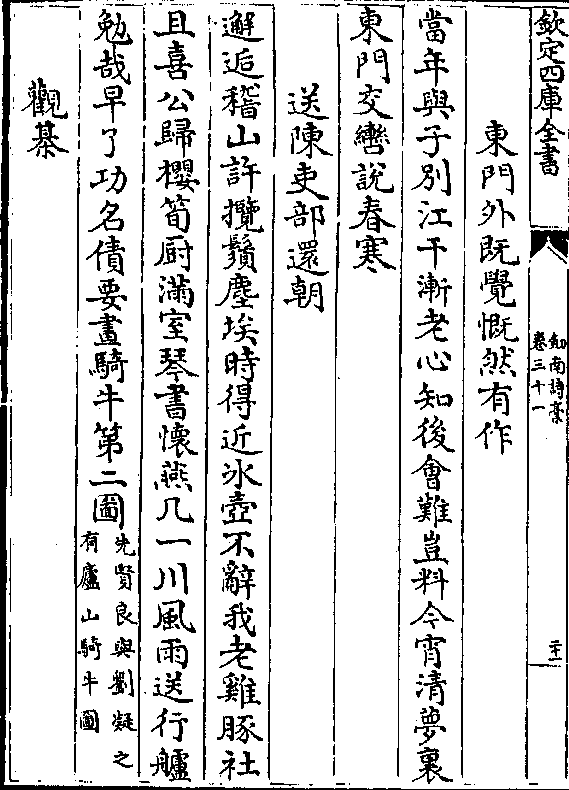 欽定四庫全書
劍南詩藁
卷三十一
二十一
東門外既覺慨然有作
當年與子別江干漸老心知後會難豈料今宵清夢裏
東門交轡說春寒
送陳吏部還朝
邂逅稽山許攬鬚塵埃時得近氷壺不辭我老雞豚社
且喜公歸櫻筍厨滿室琴書懷燕几一川風雨送行艫
勉哉早了功名債要畫騎牛第二圖先賢良與劉凝之
有廬山騎牛圖
觀棊